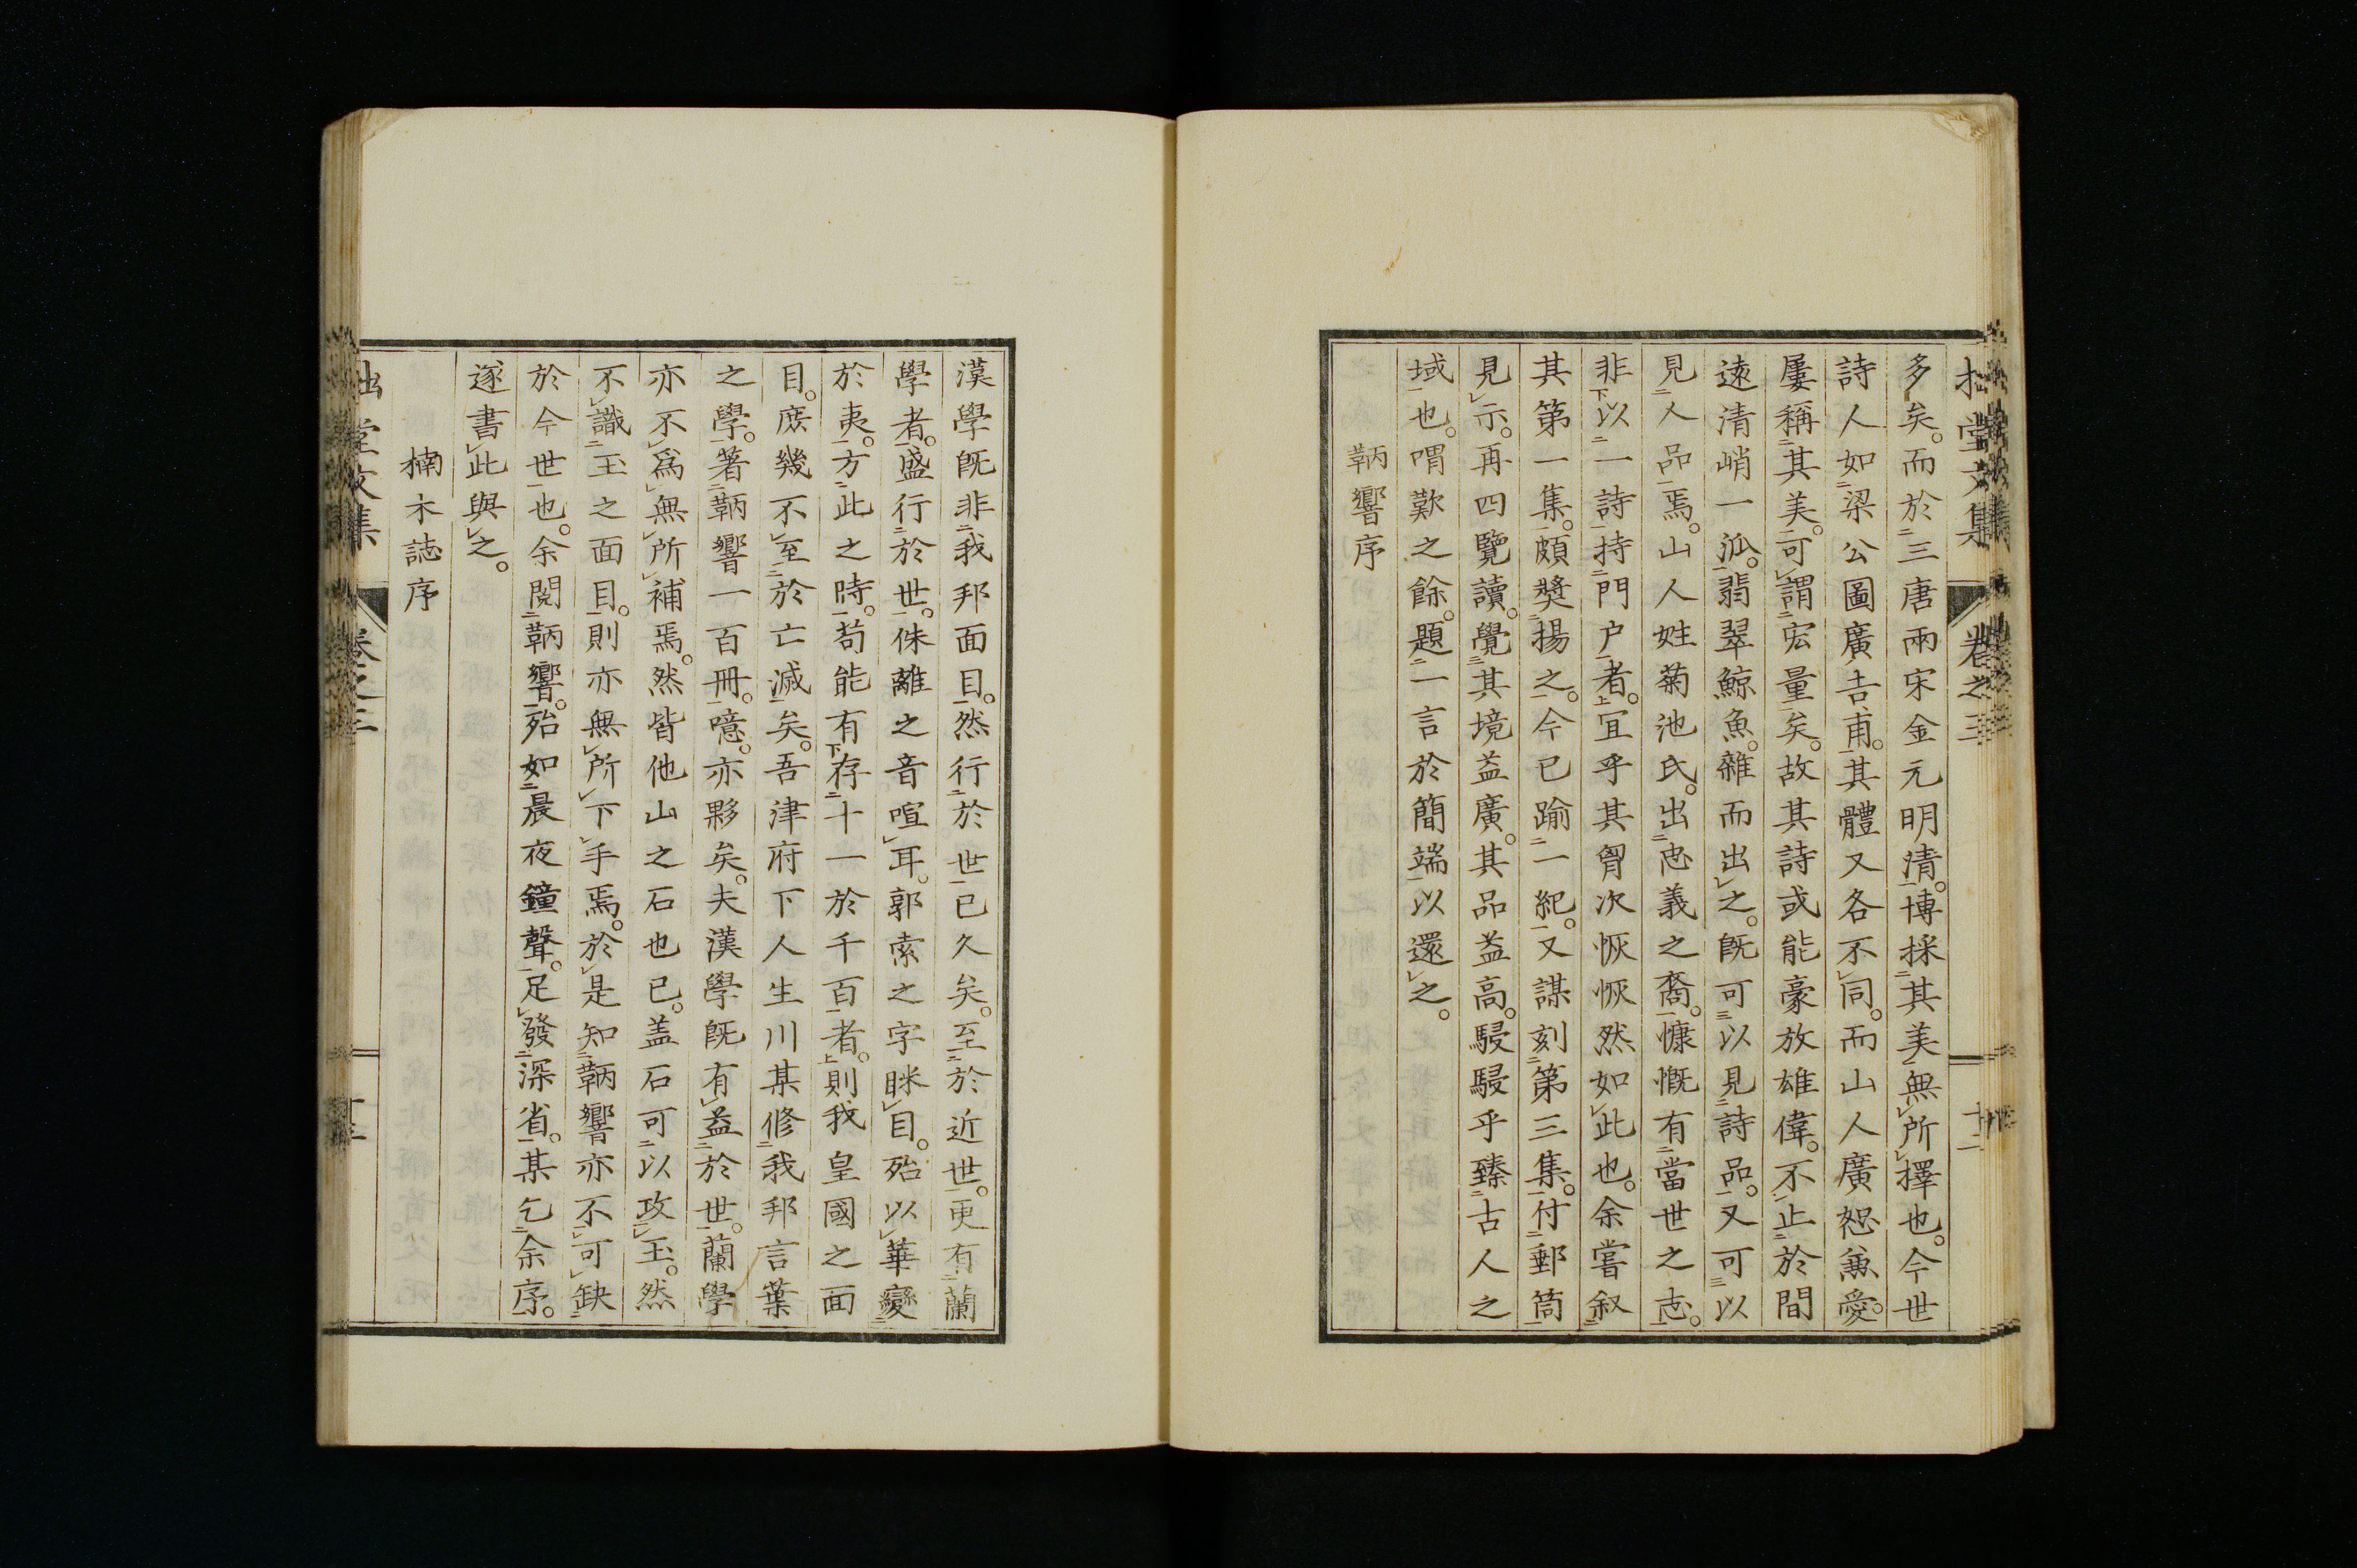 多矣。而於三唐兩宋金元明清。博採其美無所擇也。今世
詩人如梁公圖廣吉甫。其體又各不同。而山人廣恕兼愛。
屢稱其美。可謂宏量矣。故其詩或能豪放雄偉。不止於間
遠清峭一派。翡翠鯨魚。雜而出之。既可以見詩品。又可以
見人品焉。山人姓菊池氏。出忠義之裔。慷慨有當世之志。
非以一詩持門户者。宜乎其胷次恢恢然如此也。余嘗叙
其第一集。頗獎揚之。今已踰一紀。又謀刻第三集。付郵筒
見示。再四覽讀。覺其境益廣。其品益高。駸駸乎臻古人之
域也。喟歎之餘。題一言於簡端以還之。
鞆響序
漢學既非我邦面目。然行於世已久矣。至於近世。更有蘭
學者。盛行於世。侏離之音喧耳。郭索之字眯目。殆以華變
於夷。方此之時。苟能有存十一於千百者。則我皇國之面
目。庶幾不至於亡滅矣。吾津府下人生川某修我邦言葉
之學。著鞆響一百冊。噫。亦夥矣。夫漢學既有益於世。蘭學
亦不爲無所補焉。然皆他山之石也已。盖石可以攻玉。然
不識玉之面目。則亦無所下手焉。於是知鞆響亦不可缺
於今世也。余閱鞆響。殆如晨夜鐘聲。足發深省。某乞余序。
逐書此與之。
楠木誌序
堂文集
卷之三
十二